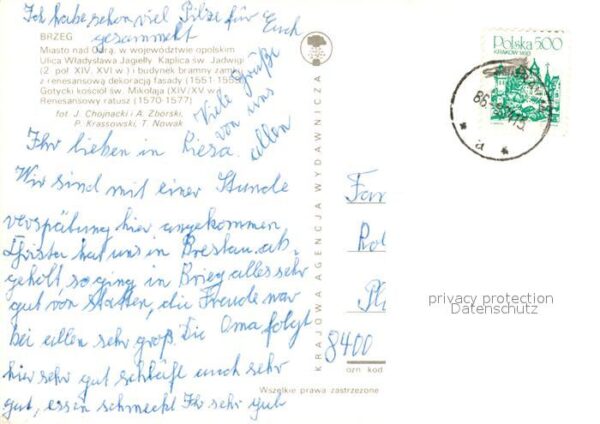 Ich habe schon viel Pilze für Euch
gesammelt
BRZEG
Miasto nad Odrą, w województwie opolskim
Ulica Władysława Jagiełły Kaplica św. Jadwigi
(2. poł XIV, XVI w) i budynek bramny zamku
z renesansową dekoracją fasady (1551-1553)
Gotycki kościół św. Mikołaja (XIV/XV w)
Renesansowy ratusz (1570-1577)
fot J. Chojnacki i A. Zborski,
P. Krassowski, T. Nowak
Viele Grüße
von uns
allen
Ihr lieben in Riesa.
Wir sind mit einer Stunde
verspätung hier angekommen
Christa hat uns in Breslau ab-
geholt, so ging in Brieg alles sehr
gut von statten, die Freude war
bei allen sehr groß. Die Oma folgt
hier sehr gut schläft auch sehr
gut, essen schmeckt Ihr sehr gut
KRAJOWA AGENCJA WYDAWNICZA
Wszelkie prawa zastrzeżone
Polska 500
KRAKÓW 1493
86
a
Fam
8400
ozn kod
privacy protection
Datenschutz